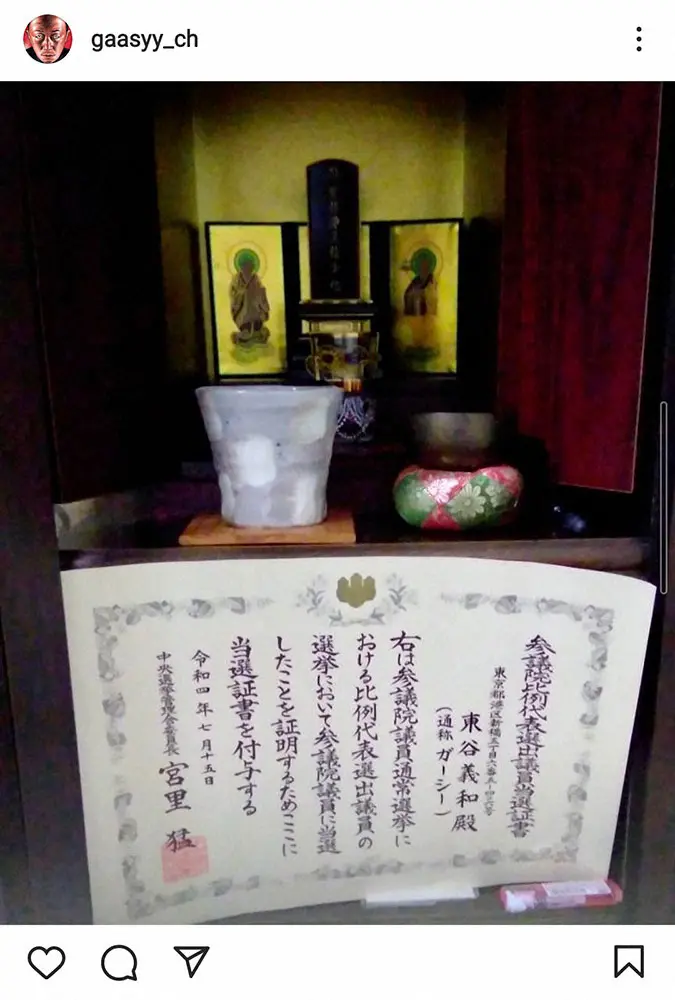 gaasyy_ch
参議院比例代表選出議員当選証書
東京都港区新橋
東谷義和殿
(通称 ガーシー)
右は参議院議員通常選挙に
おける比例代表選出議員の
選挙において参議院議員に当選
したことを証明するためここに
当選証書を付与する
令和四年七月十五日
中央選挙管理会委員長 宮里 猛